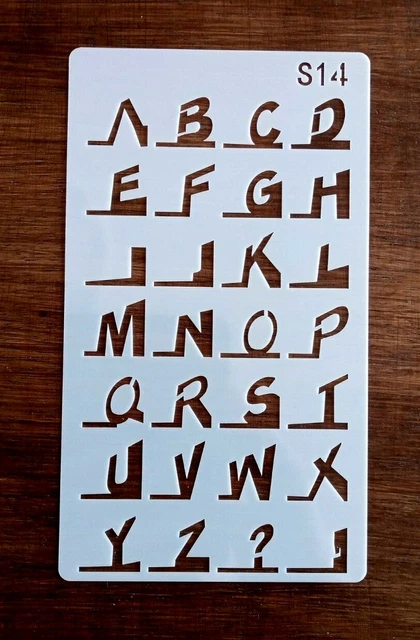 S14
A B C D
E F G H
I J K L
M N O P
Q R S T
U V W X
Y Z ? !